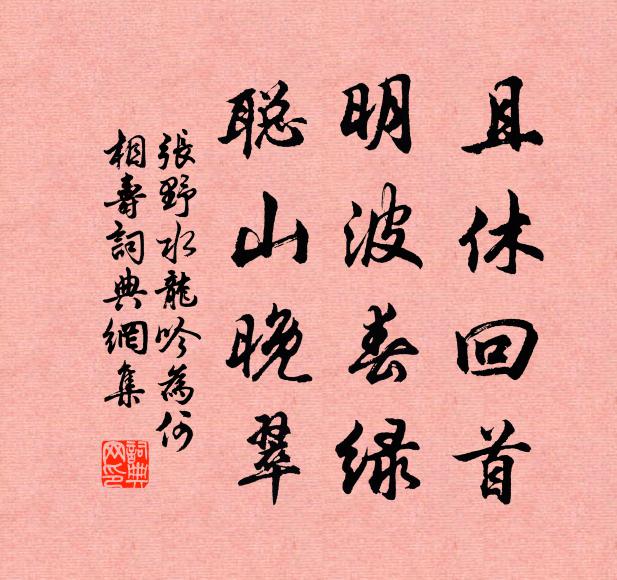 且休回首
明波春绿
聪山晚翠
張野水龍吟為何
相壽詞典網集
詞典网印